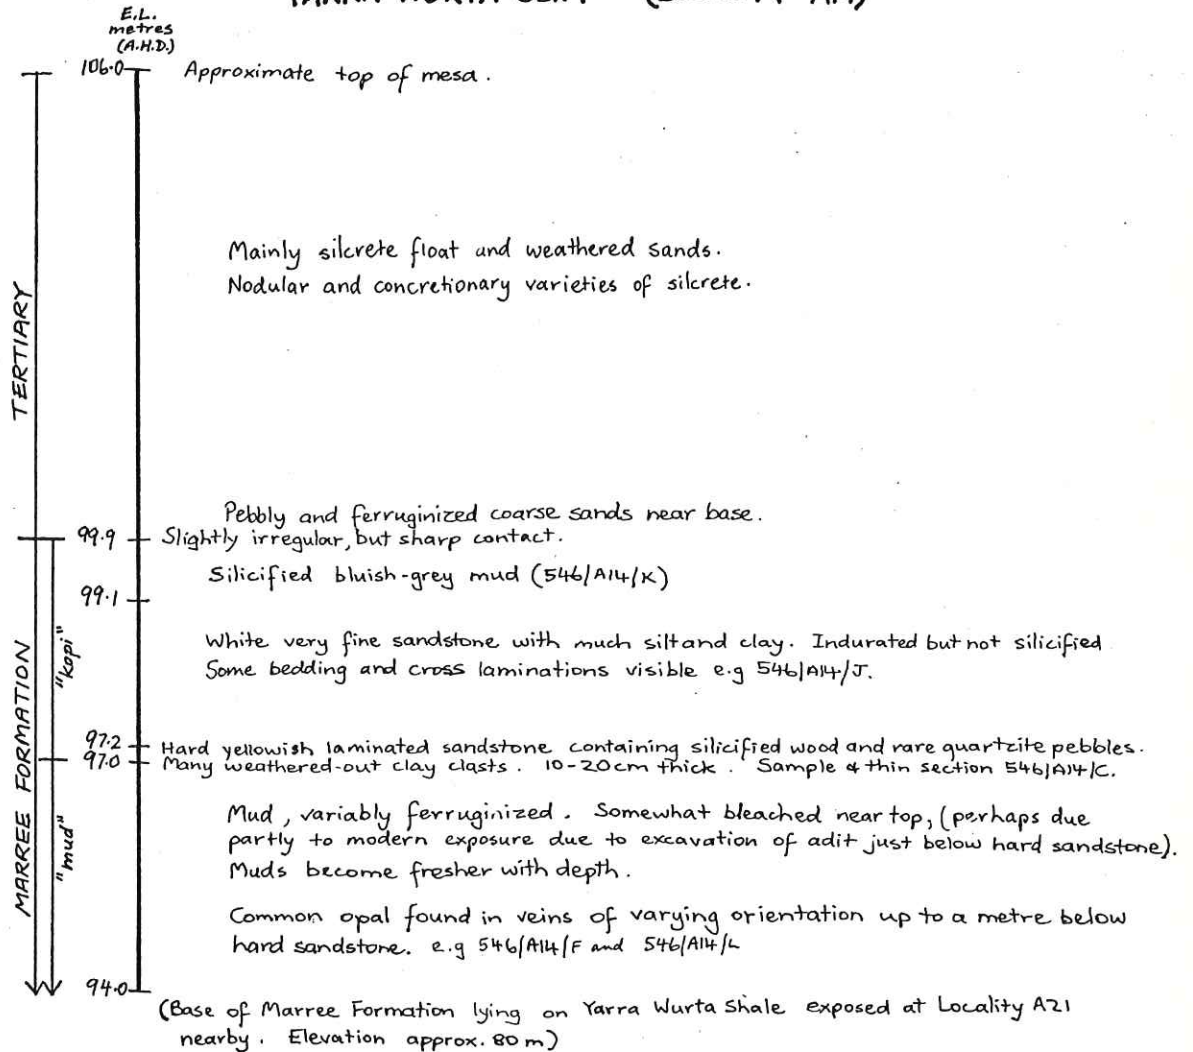 E.L.
metres
(A.H.D.)
106.0 Approximate top of mesa.
Mainly silcrete float and weathered sands.
Nodular and concretionary varieties of silcrete.
TERTIARY
Pebbly and ferruginized coarse sands near base.
99.9 Slightly irregular, but sharp contact.
Silicified bluish-grey mud (546/A14/K)
99.1
White very fine sandstone with much silt and clay. Indurated but not silicified
Some bedding and cross laminations visible e.g 546/A14/J.
"kopi"
MARREE FORMATION
97.2 Hard yellowish laminated sandstone containing silicified wood and rare quartzite pebbles.
97.0 Many weathered-out clay clasts. 10-20cm thick. Sample & thin section 546/A14/C.
Mud, variably ferruginized. Somewhat bleached near top, (perhaps due
partly to modern exposure due to excavation of adit just below hard sandstone).
Muds become fresher with depth.
"mud"
Common opal found in veins of varying orientation up to a metre below
hard sandstone. e.g 546/A14/F and 546/A14/L
94.0
(Base of Marree Formation lying on Yarra Wurta Shale exposed at Locality A21
nearby. Elevation approx. 80 m)